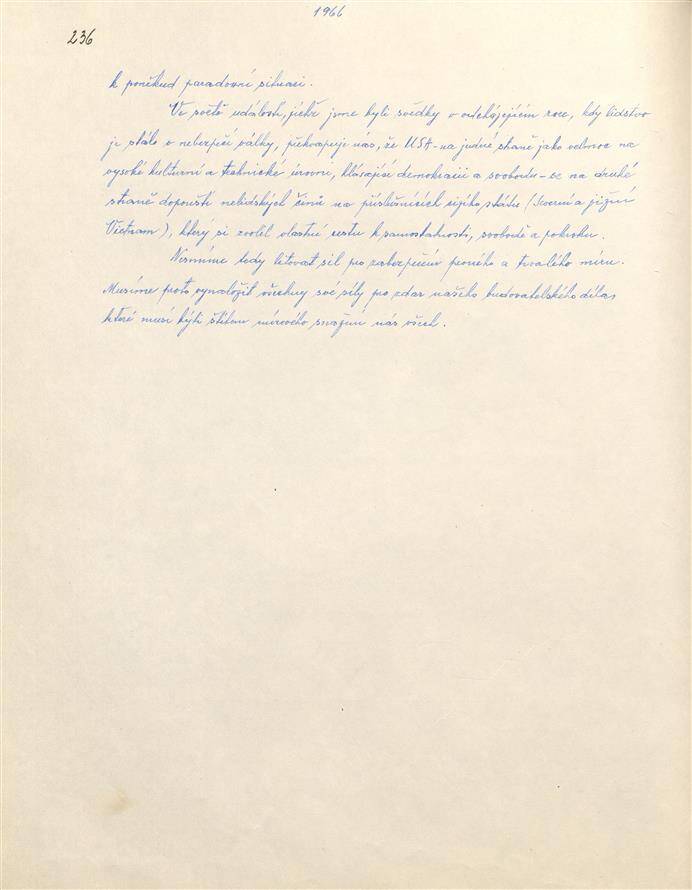 1966
236
k poněkud paradoxní situaci.
Ve světě událostí, jichž jsme byli svědky v odcházejícím roce, kdy lidstvo
je stále v nebezpečí války, překvapuje nás, že USA - na jedné straně jako velmoc na
vysoké kulturní a technické úrovni, hlásající demokracii a svobodu - se na druhé
straně dopouští nelidských činů na příslušnících cizího státu (Severní a jižní
Vietnam), který si zvolil vlastní cestu k samostatnosti, svobodě a pokroku.
Nesmíme tedy litovat sil po zabezpečení pevného a trvalého míru.
Musíme proto vynaložit všechny své síly po zdar našeho budovatelského díla,
které musí býti štítem mírového snažení nás všech.